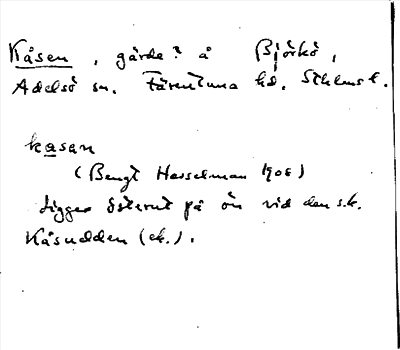 Kåsen, gärde? å Björkö,
Adelsö sn. Färentuna hd. Sthlms l.
kasan
(Bengt Hesselman 1908)
Ligger österut på ön vid den s.k.
Kåsudden (ek.).